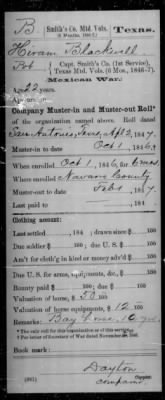 B Smith's Co. Mtd. Vols. Texas.
(6 Months, 1846-7.)
Hiram Blackwell
Pvt, Capt. Smith's Co. (1st Service),
Texas Mtd. Vols. (6 Mos., 1846-7).
Mexican War.
Age 22 years.
Company Muster-in and Muster-out Roll*
of the organization named above. Roll dated
San Antonio, Texas, 1847
Muster-in to date Oct 1, 1846.
When enrolled Oct 1, 1846, for 6 mos.
Where enrolled Navarro County
Muster-out to date, 1847
Last paid to, 184
Clothing account:
Last settled, 184 ; drawn since $ 100
Due soldier $ 100; due U. S. $ 100
Am't for cloth'g in kind or money adv'd $ 100
Due U. S. for arms, equipments, &c., $ 100
Bounty paid $ 100; due $ 100
Valuation of horse, $ 50 100
Valuation of horse equipments, $ 12 100
Remarks: Bay horse, 10 yrs.
Book mark:
Dayton
(861) Copyist.